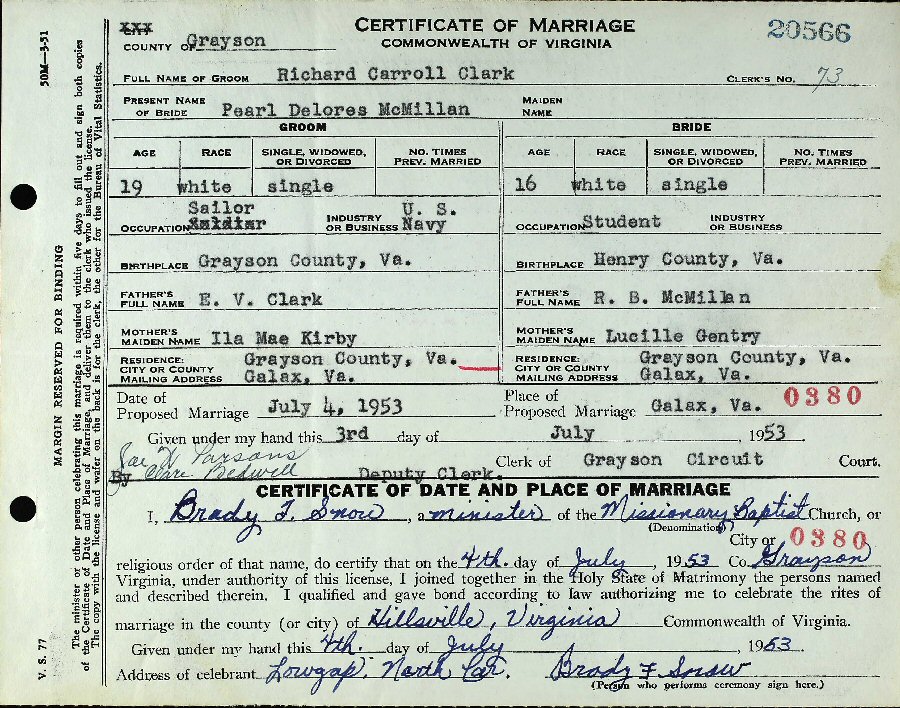 CERTIFICATE OF MARRIAGE
20566
COUNTY OF Grayson
COMMONWEALTH OF VIRGINIA
FULL NAME OF GROOM Richard Carroll Clark CLERK'S NO. 73
PRESENT NAME OF BRIDE Pearl Delores McMillan MAIDEN NAME
GROOM BRIDE
AGE RACE SINGLE, WIDOWED, OR DIVORCED NO. TIMES PREV. MARRIED AGE RACE SINGLE, WIDOWED, OR DIVORCED NO. TIMES PREV. MARRIED
19 white single 16 white single
OCCUPATION Sailor INDUSTRY OR BUSINESS U. S. Navy OCCUPATION Student INDUSTRY OR BUSINESS
BIRTHPLACE Grayson County, Va. BIRTHPLACE Henry County, Va.
FATHER'S FULL NAME E. V. Clark FATHER'S FULL NAME R. B. McMillan
MOTHER'S MAIDEN NAME Ila Mae Kirby MOTHER'S MAIDEN NAME Lucille Gentry
RESIDENCE: CITY OR COUNTY Grayson County, Va. RESIDENCE: CITY OR COUNTY Grayson County, Va.
MAILING ADDRESS Galax, Va. MAILING ADDRESS Galax, Va.
Date of Proposed Marriage July 4, 1953 Place of Proposed Marriage Galax, Va. 0380
Given under my hand this 3rd day of July, 1953
Joe W Parsons Clerk of Grayson Circuit Court.
By Clare Bedwell Deputy Clerk.
CERTIFICATE OF DATE AND PLACE OF MARRIAGE
I, Brady F. Snow, a minister of the Missionary Baptist Church, or
(Denomination)
City or 0380
religious order of that name, do certify that on the 4th. day of July, 1953 Co. Grayson
Virginia, under authority of this license, I joined together in the Holy State of Matrimony the persons named
and described therein. I qualified and gave bond according to law authorizing me to celebrate the rites of
marriage in the county (or city) of Hillsville, Virginia Commonwealth of Virginia.
Given under my hand this 4th. day of July, 1953
Address of celebrant Lowgap, North Car. Brady F Snow
(Person who performs ceremony sign here.)
50M—3-51
MARGIN RESERVED FOR BINDING
V. S. 77
The minister or other person celebrating this marriage is required within five days to fill out and sign both copies
of the Certificate of Date and Place of Marriage, and deliver them to the clerk who issued the license.
The copy with the license and wafer on the back is for the clerk, the other for the Bureau of Vital Statistics.